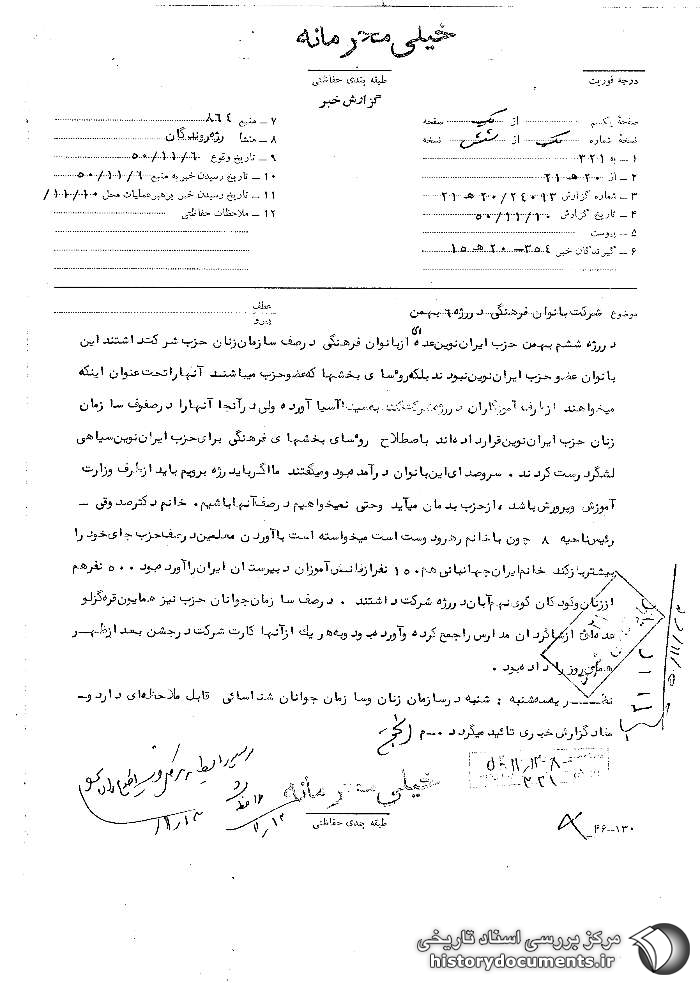 خیلی محرمانه
درجه فوریت
طبقه بندی حفاظتی
گزارش خبر
صفحهٔ یکم از یک صفحه
نسخهٔ شماره یک از شش نسخه
۱ ـ به ۳۲۱
۲ ـ از ۲۰ هـ ۲۱
۳ ـ شماره گزارش ۲۰/۲۴۰۹۳ هـ ۲۱
۴ ـ تاریخ گزارش ۵۰/۱۱/۱۰
۵ ـ پیوست
۶ ـ گیرندگان خبر ۳۵۴ـ ۲۰ هـ ۱۵
۷ ـ منبع ۸۶۴
۸ ـ منشا رژه روندگان
۹ ـ تاریخ وقوع ۵۰/۱۱/۶
۱۰ ـ تاریخ رسیدن خبر به منبع ۵۰/۱۱/۶
۱۱ ـ تاریخ رسیدن خبر برهبر عملیات محل ۱۱/۱۰/
۱۲ ـ ملاحظات حفاظتی
موضوع شرکت بانوان فرهنگی در رژه ۶ بهمن
عطف
پیرو
در رژه ششم بهمن حزب ایران نوین عده ای از بانوان فرهنگی در صف سازمان زنان حزب شرکت داشتند این
بانوان عضو حزب ایران نوین نبودند بلکه روسای بخشها که عضو حزب میباشند آنها را تحت عنوان اینکه
میخواهند از طرف آموزگاران در رژه شرکت کنند به آسیا آورده ولی در آنجا آنها را در صفوف سازمان
زنان حزب ایران نوین قرار داده اند باصطلاح روسای بخشهای فرهنگی برای حزب ایران نوین سیاهی
لشگر درست کردند . سروصدای این بانوان درآمده بود و میگفتند ما اگر باید رژه برویم باید از طرف وزارت
آموزش و پرورش باشد ، از حزب بدمان میآید وحتی نمیخواهیم در صف آنها باشیم. خانم دکتر صدوقی ـ
رئیس ناحیه ۸ چون با خانم رهرو دوست است میخواسته است با آوردن معلمین در صف حزب جای خود را
بیشتر باز کند خانم ایران جهانبانی هم ۱۵۰ نفر از دانش آموزان دبیرستان ایران را آورده بود. ۵۰۰ نفر هم
از زنان و کودکان کوی نهم آبان در رژه شرکت داشتند . در صف سازمان جوانان حزب نیز همایون قره گزلو
عده ای از شاگردان مدارس را جمع کرده و آورده بود و به هر یک از آنها کارت شرکت در جشن بعد از ظهر
همان روز را داده بود .
نظریه سه شنبه : شنبه در سازمان زنان و سازمان جوانان شناسائی قابل ملاحظه ای دارد و ـ
مفاد گزارش خبری تائید میگردد .
۵۰/۱۱/۱۳-۸
۳۲۱
خیلی محرمانه
طبقه بندی حفاظتی
۴۶-۱۳۰
مرکز بررسی اسناد تاریخی
historydocuments.ir